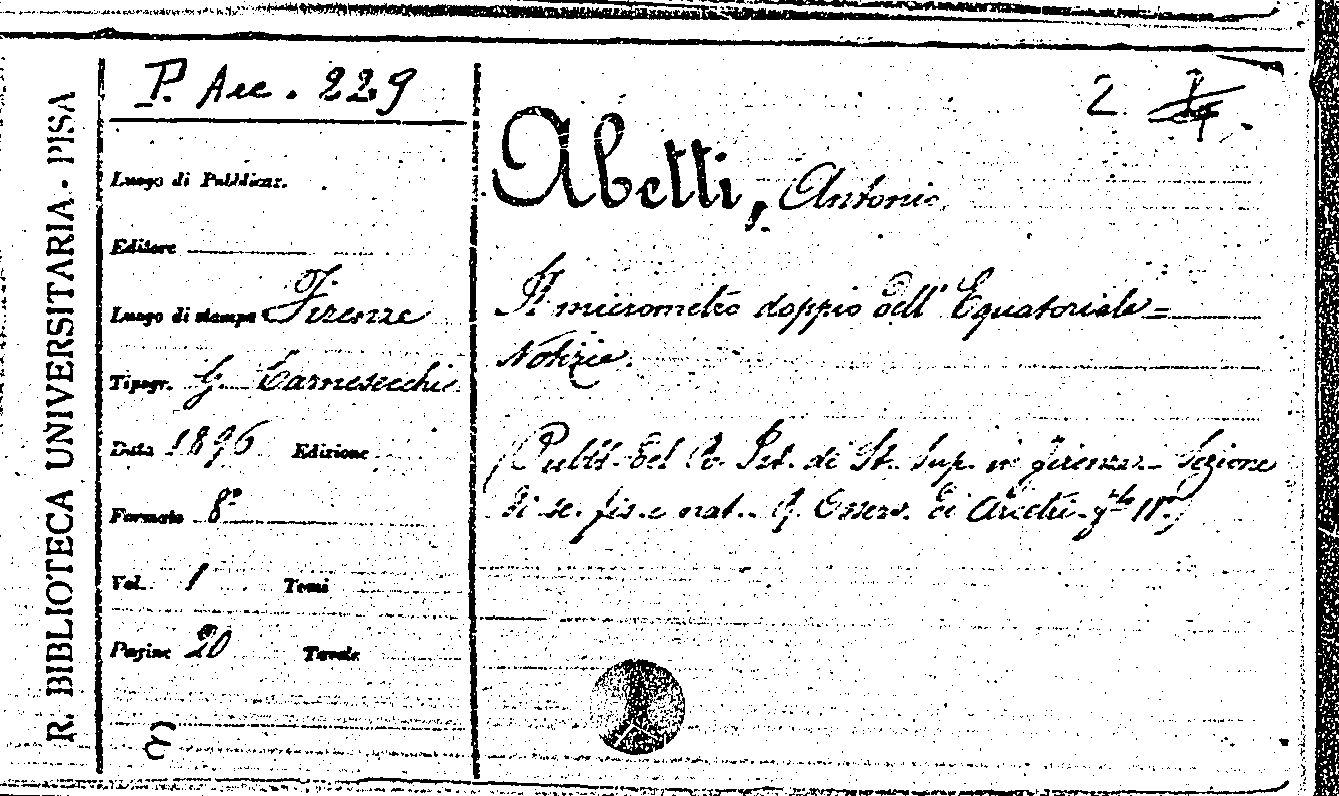 R. BIBLIOTECA UNIVERSITARIA - PISA
P. Acc. 229
Luogo di Pubblicaz.
Editore
Luogo di stampa Firenze
Tipogr. G. Carnesecchi
Data 1896 Edizione
Formato 8°
Vol. 1 Tomi
Pagine 20 Tavole
2
Abetti, Antonio
Il micrometro doppio dell' Equatoriale =
Notizie.
(Pubb. del R. Ist. di St. Sup. in Firenze - Sezione
di sc. fis. e nat. - R. Osserv. di Arcetri